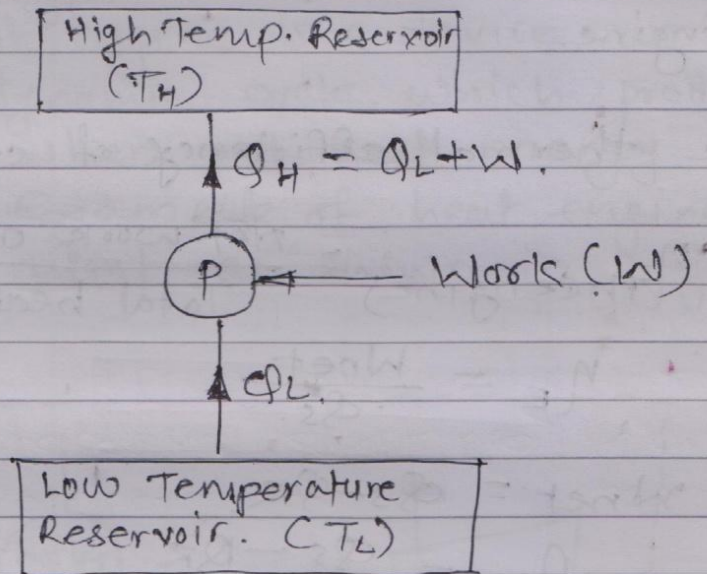 High Temp. Reservoir
(TH)
QH = QL + W.
P
Work (W)
QL.
Low Temperature
Reservoir. (TL)